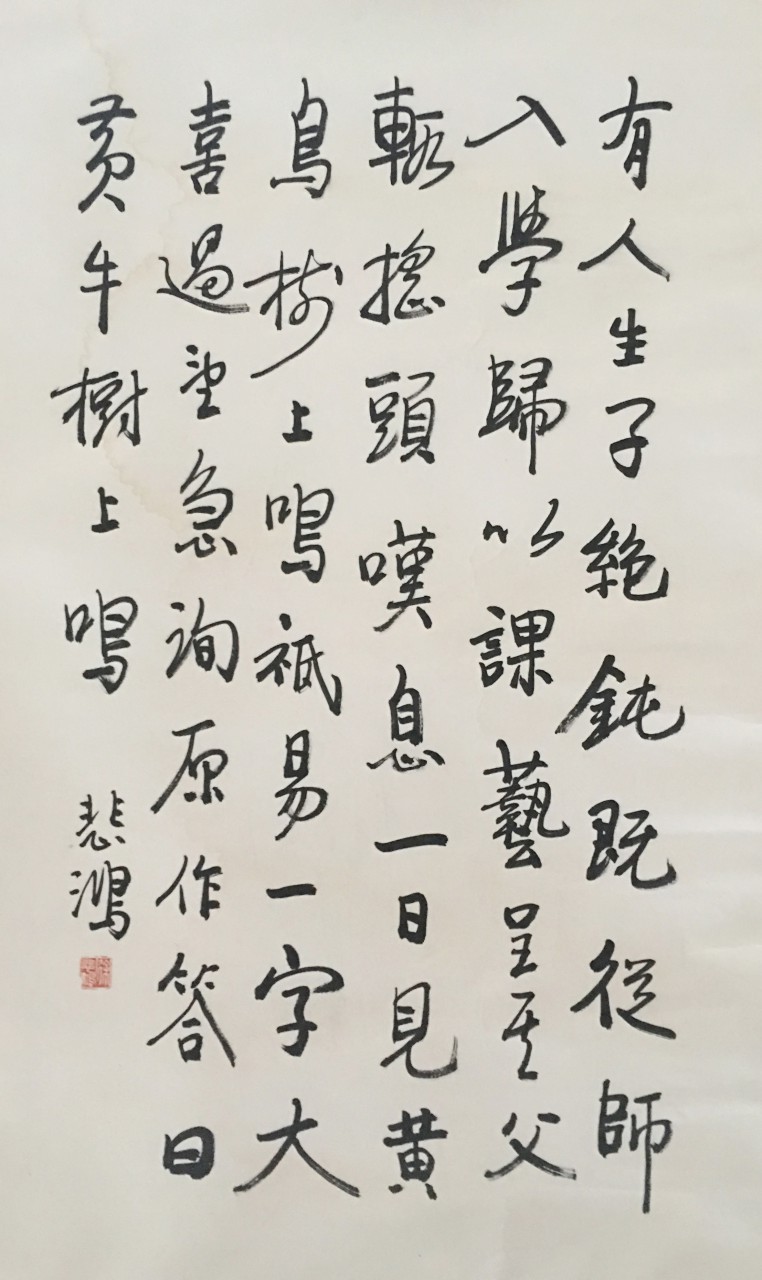 有人生子絶鈍既從師
入學歸以課藝呈其父
輒搖頭嘆息一日見黄
鳥樹上鳴祗易一字大
喜過望急詢原作答曰
黄牛樹上鳴
悲鴻